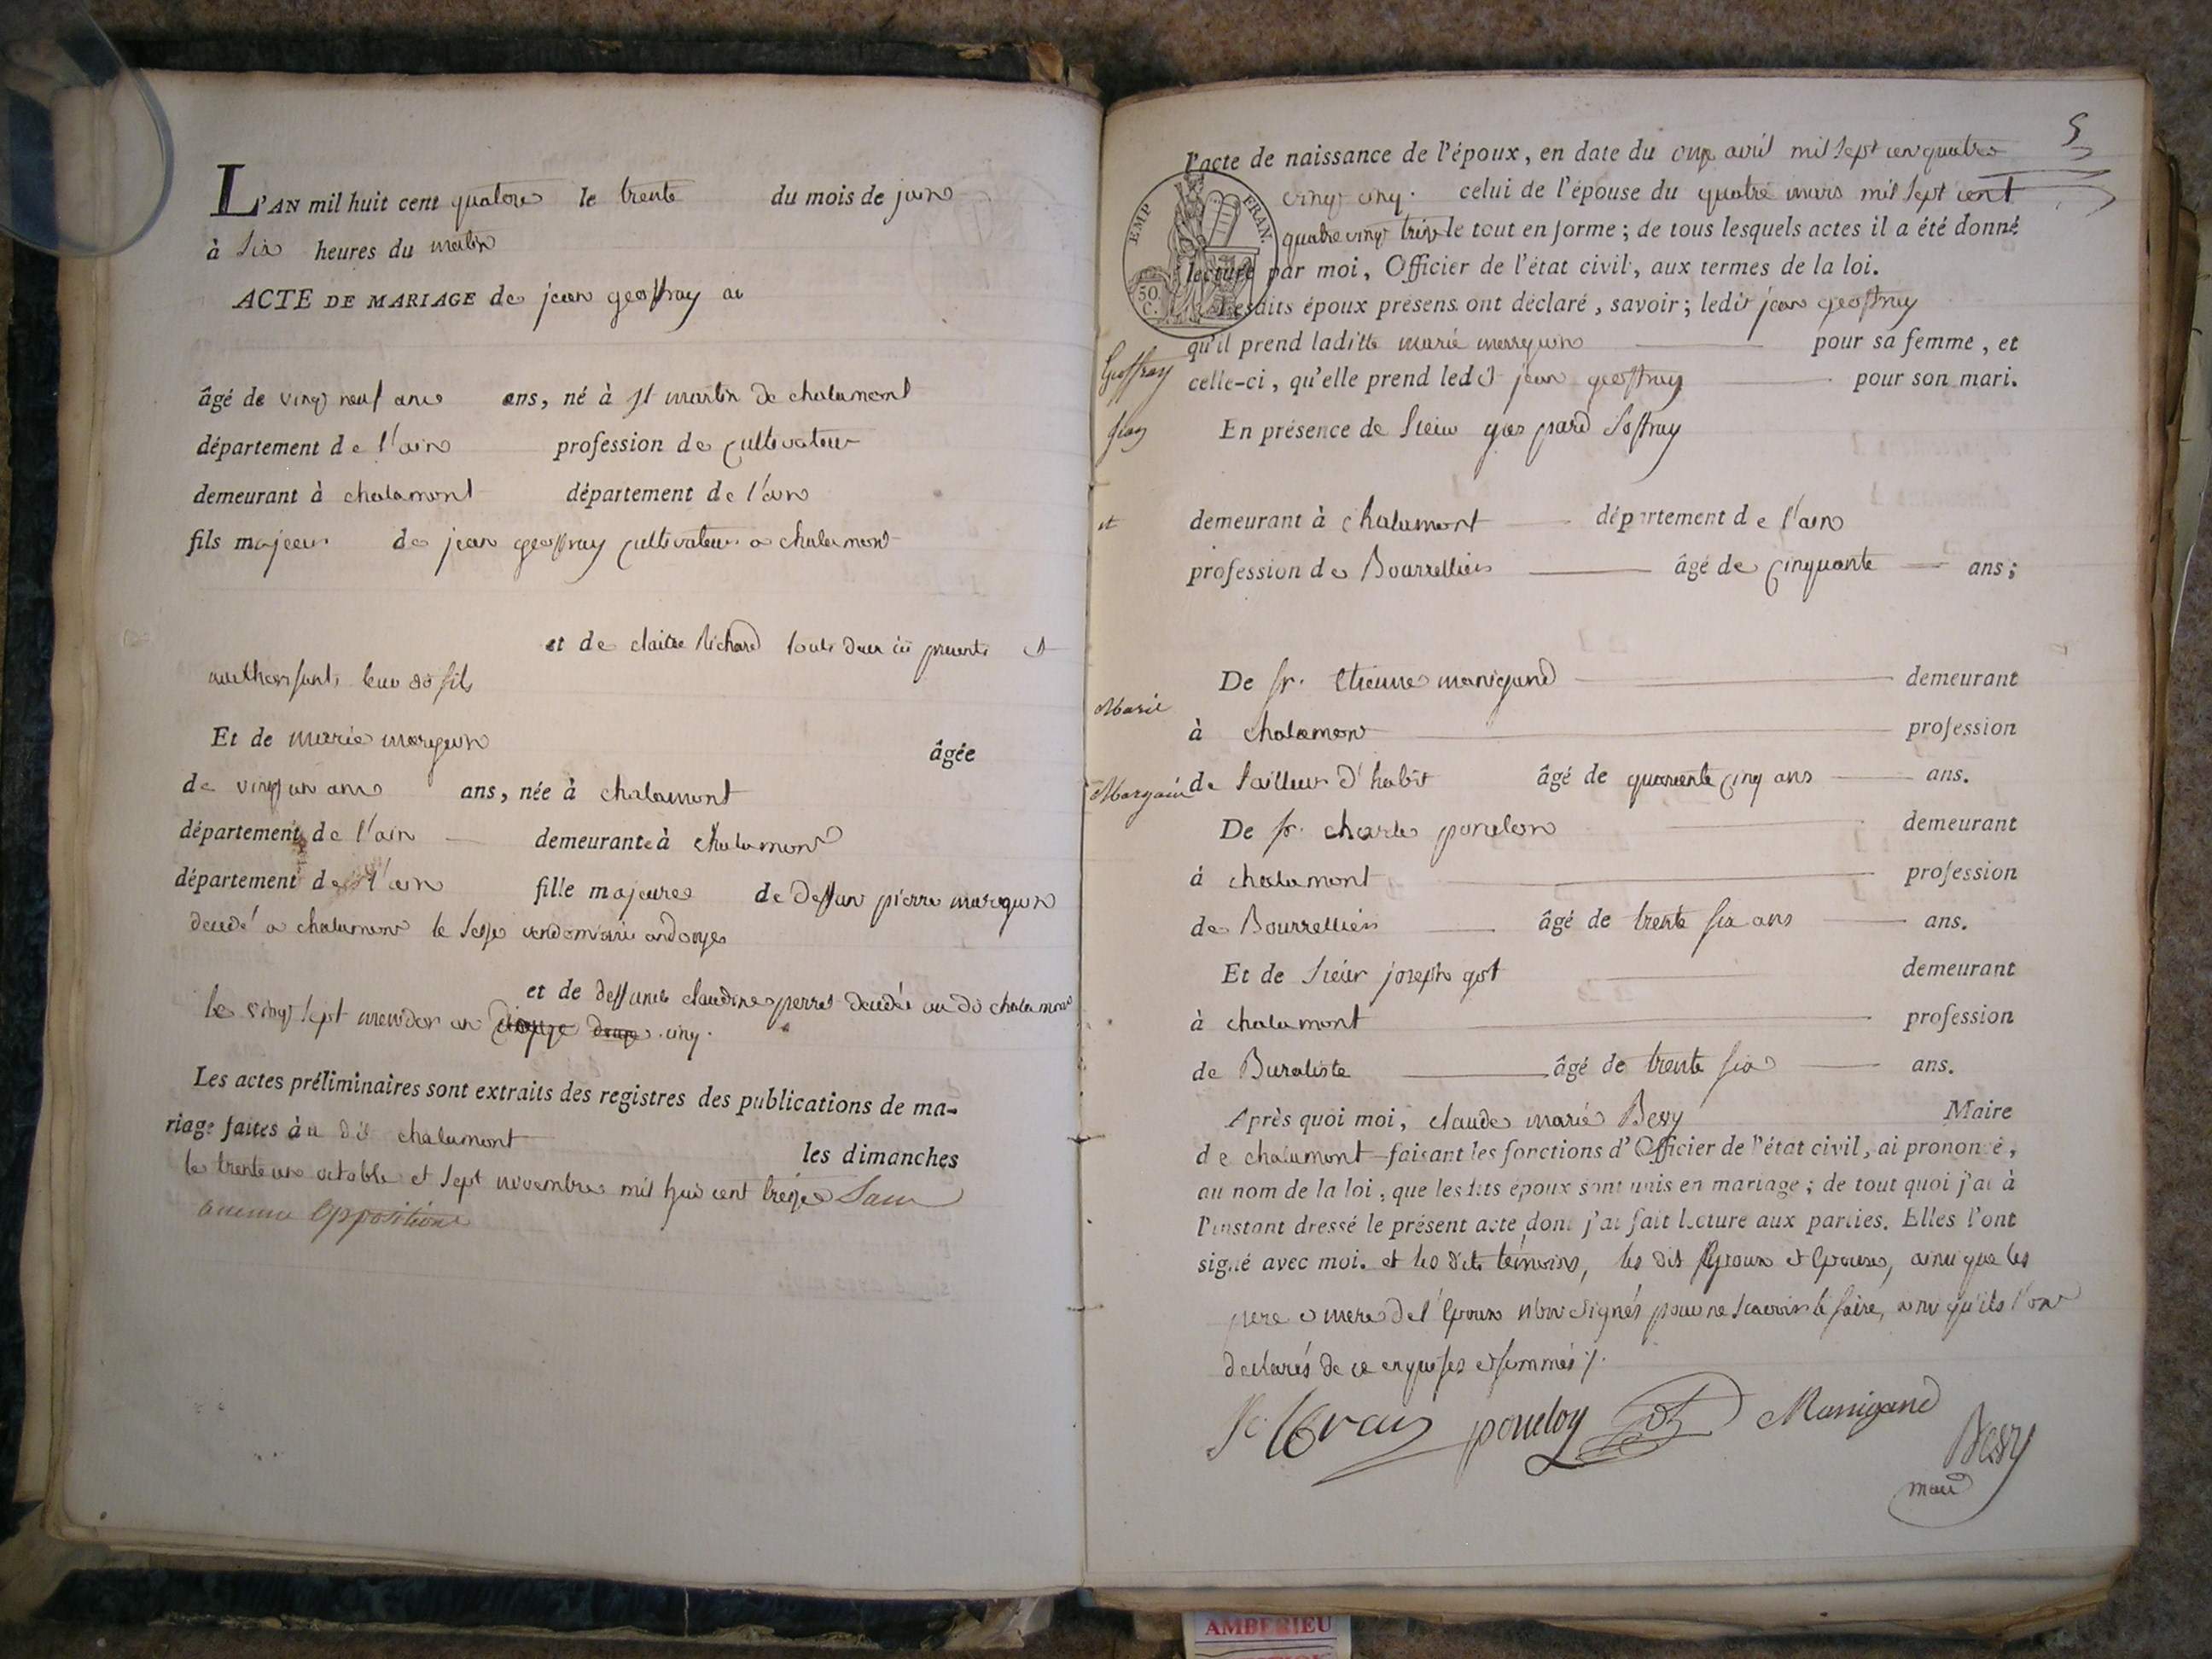 L'AN mil huit cent quatorze le trente du mois de juin
à six heures du matin
ACTE DE MARIAGE de jean geoffray
âgé de vingt neuf ans ans, né à St martin de chalamont
département de l'ain profession de cultivateur
demeurant à chalamont département de l'ain
fils majeur de jean geoffray cultivateur a chalamont
et de claire Richard touts deux ici presents et
authorisants leur do fils
Et de marie margain âgée
de vingt un ans ans, née à chalamont
département de l'ain demeurante à chalamont
département de l'ain fille majeure de deffun pierre margain
décédé a chalamont le seize vendemiaire an douze
et de deffunte claudine perret décédé au do chalamont
le vingt sept an cinq.
Les actes préliminaires sont extraits des registres des publications de ma-
riage faites à u do chalamont les dimanches
le trente un octobre et sept novembre mil huit cent treize Sans
aucune Opposition
5
l'acte de naissance de l'époux, en date du onze avril mil sept cen quatre
vingt cinq. celui de l'épouse du quatre mars mil sept cent
quatre vingt treize le tout en forme; de tous lesquels actes il a été donné
lecture par moi, Officier de l'état civil, aux termes de la loi.
Lesdits époux présens ont déclaré, savoir; ledit jean geoffray
qu'il prend laditte marie margain pour sa femme, et
celle-ci, qu'elle prend ledit jean geoffray pour son mari.
EMP FRAN.
50 C.
Geoffray
Jean
et
Marie
Margain
En présence de Sieur gaspard Joffray
demeurant à chalamont département de l'ain
profession de Bourrellier âgé de cinquante ans;
De sr. Etienne manigand demeurant
à chalamont profession
de tailleur d'habit âgé de quarente cinq ans ans.
De sr. charle poncelon demeurant
à chalamont profession
de Bourrellier âgé de trente six ans ans.
Et de Sieur joseph got demeurant
à chalamont profession
de Buraliste âgé de trente six ans.
Après quoi moi, claude marie Bessy Maire
de chalamont faisant les fonctions d'Officier de l'état civil, ai prononcé,
au nom de la loi, que lesdits époux sont unis en mariage; de tout quoi j'ai à
l'instant dressé le présent acte dont j'ai fait lecture aux parties. Elles l'ont
signé avec moi. et les dits témoins, les dit Epoux et Epouse, ainsi que les
pere et mere de l'Epoux n'ont signés pour ne scavoir le faire, ainsi qu'ils l'ont
declarés de ce enquis et sommés
Manigand
Bessy
maire
AMBERIEU